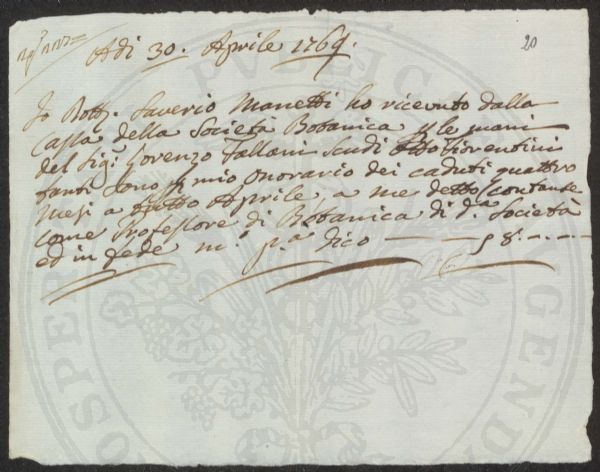 Adi 30. Aprile 1769.
20
Jo Dott. Saverio Manetti ho ricevuto dalla
Cassa della Società Botanica p le mani
del Sig. Lorenzo Fallani scudi otto Fiorentini
tanti sono p mio onorario dei caduti quattro
Mesi a tutto Aprile, a me detto contante
come Professore di Botanica di d.a Società
ed in fede m.o p.a dico — 8.-.-
PROSPERITATI PUBLICAE AUGENDAE